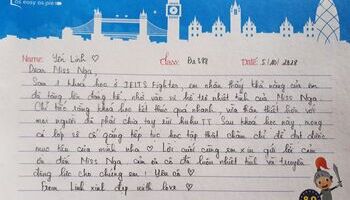 as easy as pie
Name: Yến Linh ♡ Class: Date:
Dear Miss Nga,
Sau 1 khoá học ở IELTS Fighter, em nhận thấy khả năng của em
đã tăng lên đáng kể, nhờ vào sự hỗ trợ nhiệt tình của Miss Nga.
Chỉ tiếc rằng khoá học kết thúc quá nhanh, vừa thân thiết hơn với
mọi người đã phải chia tay rồi huhu TT. Sau khoá học này, mong
cả lớp sẽ cố gắng tiếp tục học tập thật chăm chỉ để đạt được
mục tiêu của mình nha ♡ Lời cuối cùng em xin gửi lời cảm
ơn đến Miss Nga của em cô đã luôn nhiệt tình và truyền
động lực cho chúng em! Yêu cô ♡
From Linh xinh đẹp with love ♡